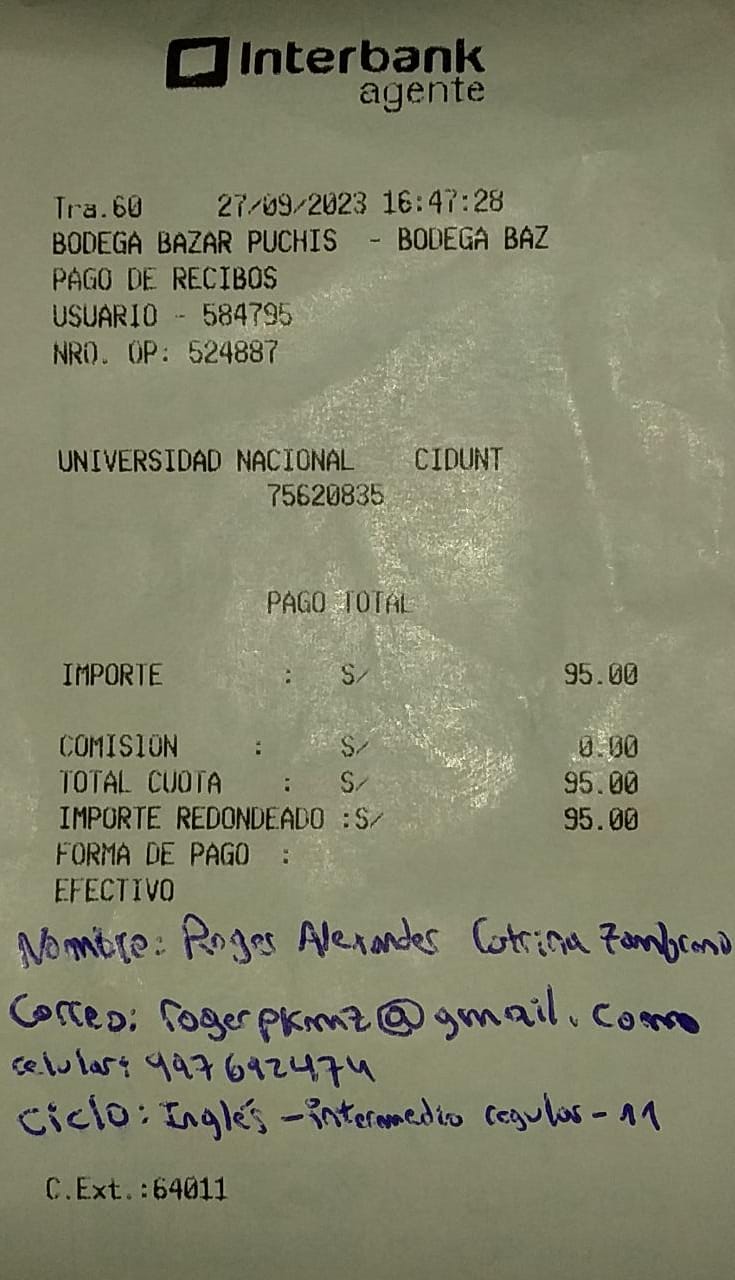 Interbank
agente
Tra.60 27/09/2023 16:47:28
BODEGA BAZAR PUCHIS - BODEGA BAZ
PAGO DE RECIBOS
USUARIO - 584795
NRO. OP: 524887
UNIVERSIDAD NACIONAL CIDUNT
75620835
PAGO TOTAL
IMPORTE : S/ 95.00
COMISION : S/ 0.00
TOTAL CUOTA : S/ 95.00
IMPORTE REDONDEADO :S/ 95.00
FORMA DE PAGO :
EFECTIVO
Nombre: Roger Alexander Cotrina Zambrano
Correo: rogerpkmz@gmail.com
celular: 997692474
Ciclo: Inglés - intermedio regular - 11
C.Ext.:64011